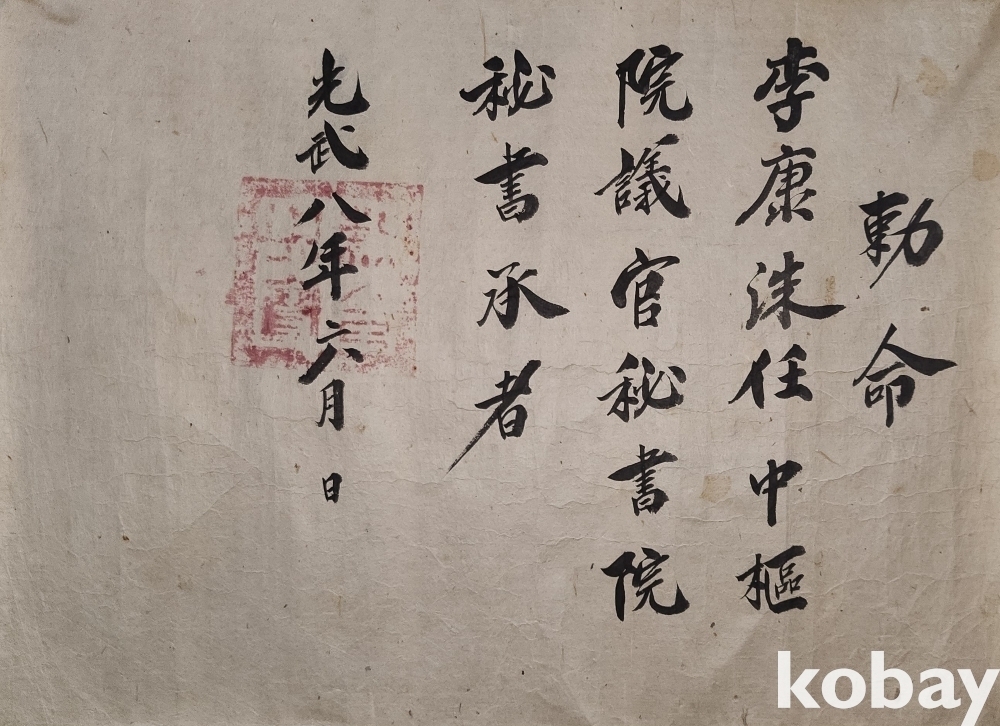 勅命
李康洙任中樞
院議官秘書院
秘書承者
光武八年六月 日
kobay